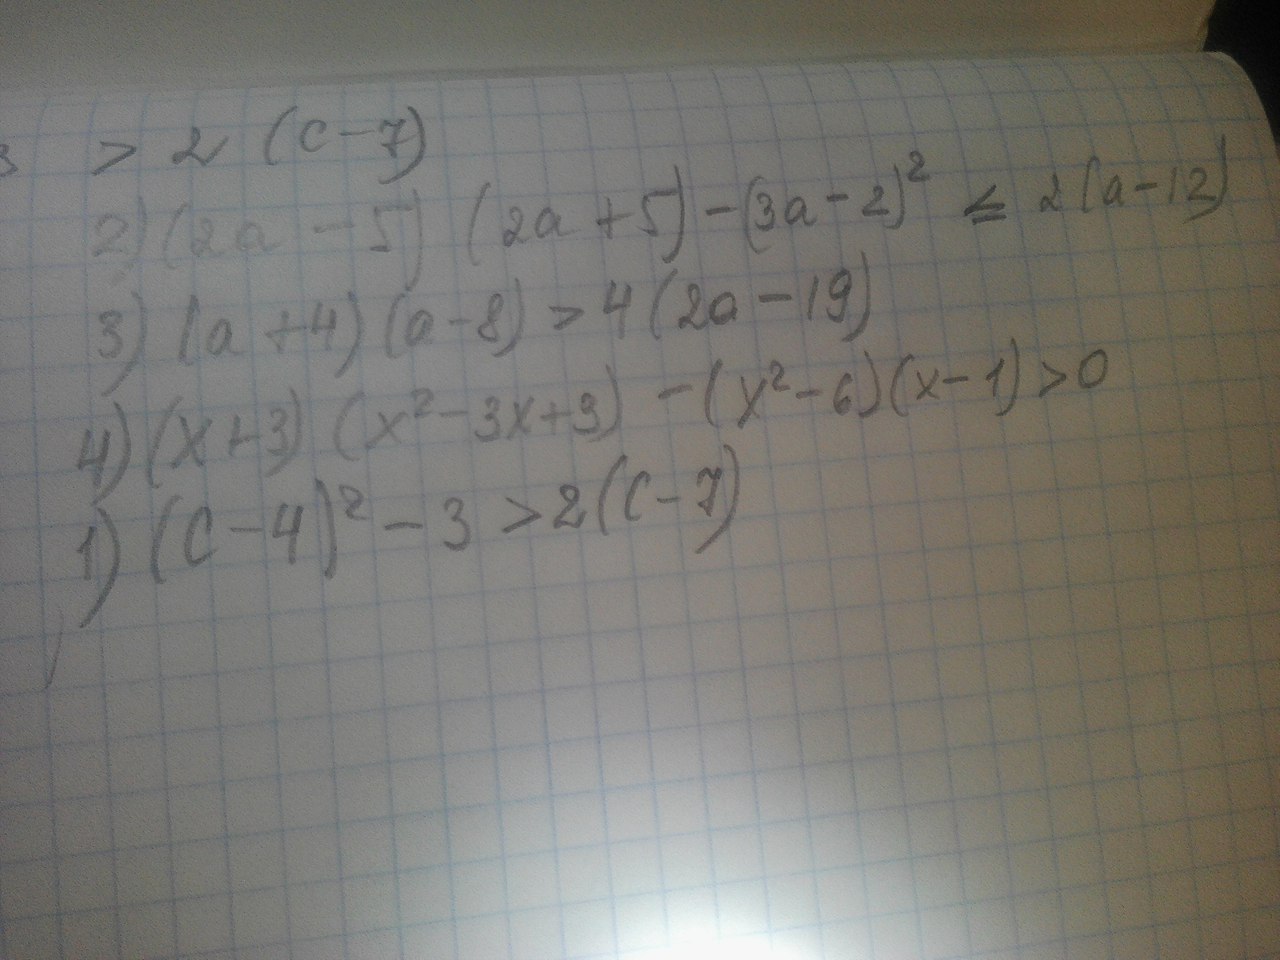 3 > 2 (c-7)
2) (2a - 5) (2a + 5) - (3a - 2)² ≤ 2(a-12)
3) (a + 4) (a - 8) > 4 (2a - 19)
4) (x+3) (x² - 3x + 3) - (x² - 6) (x - 1) > 0
1) (c - 4)² - 3 > 2(c - 7)